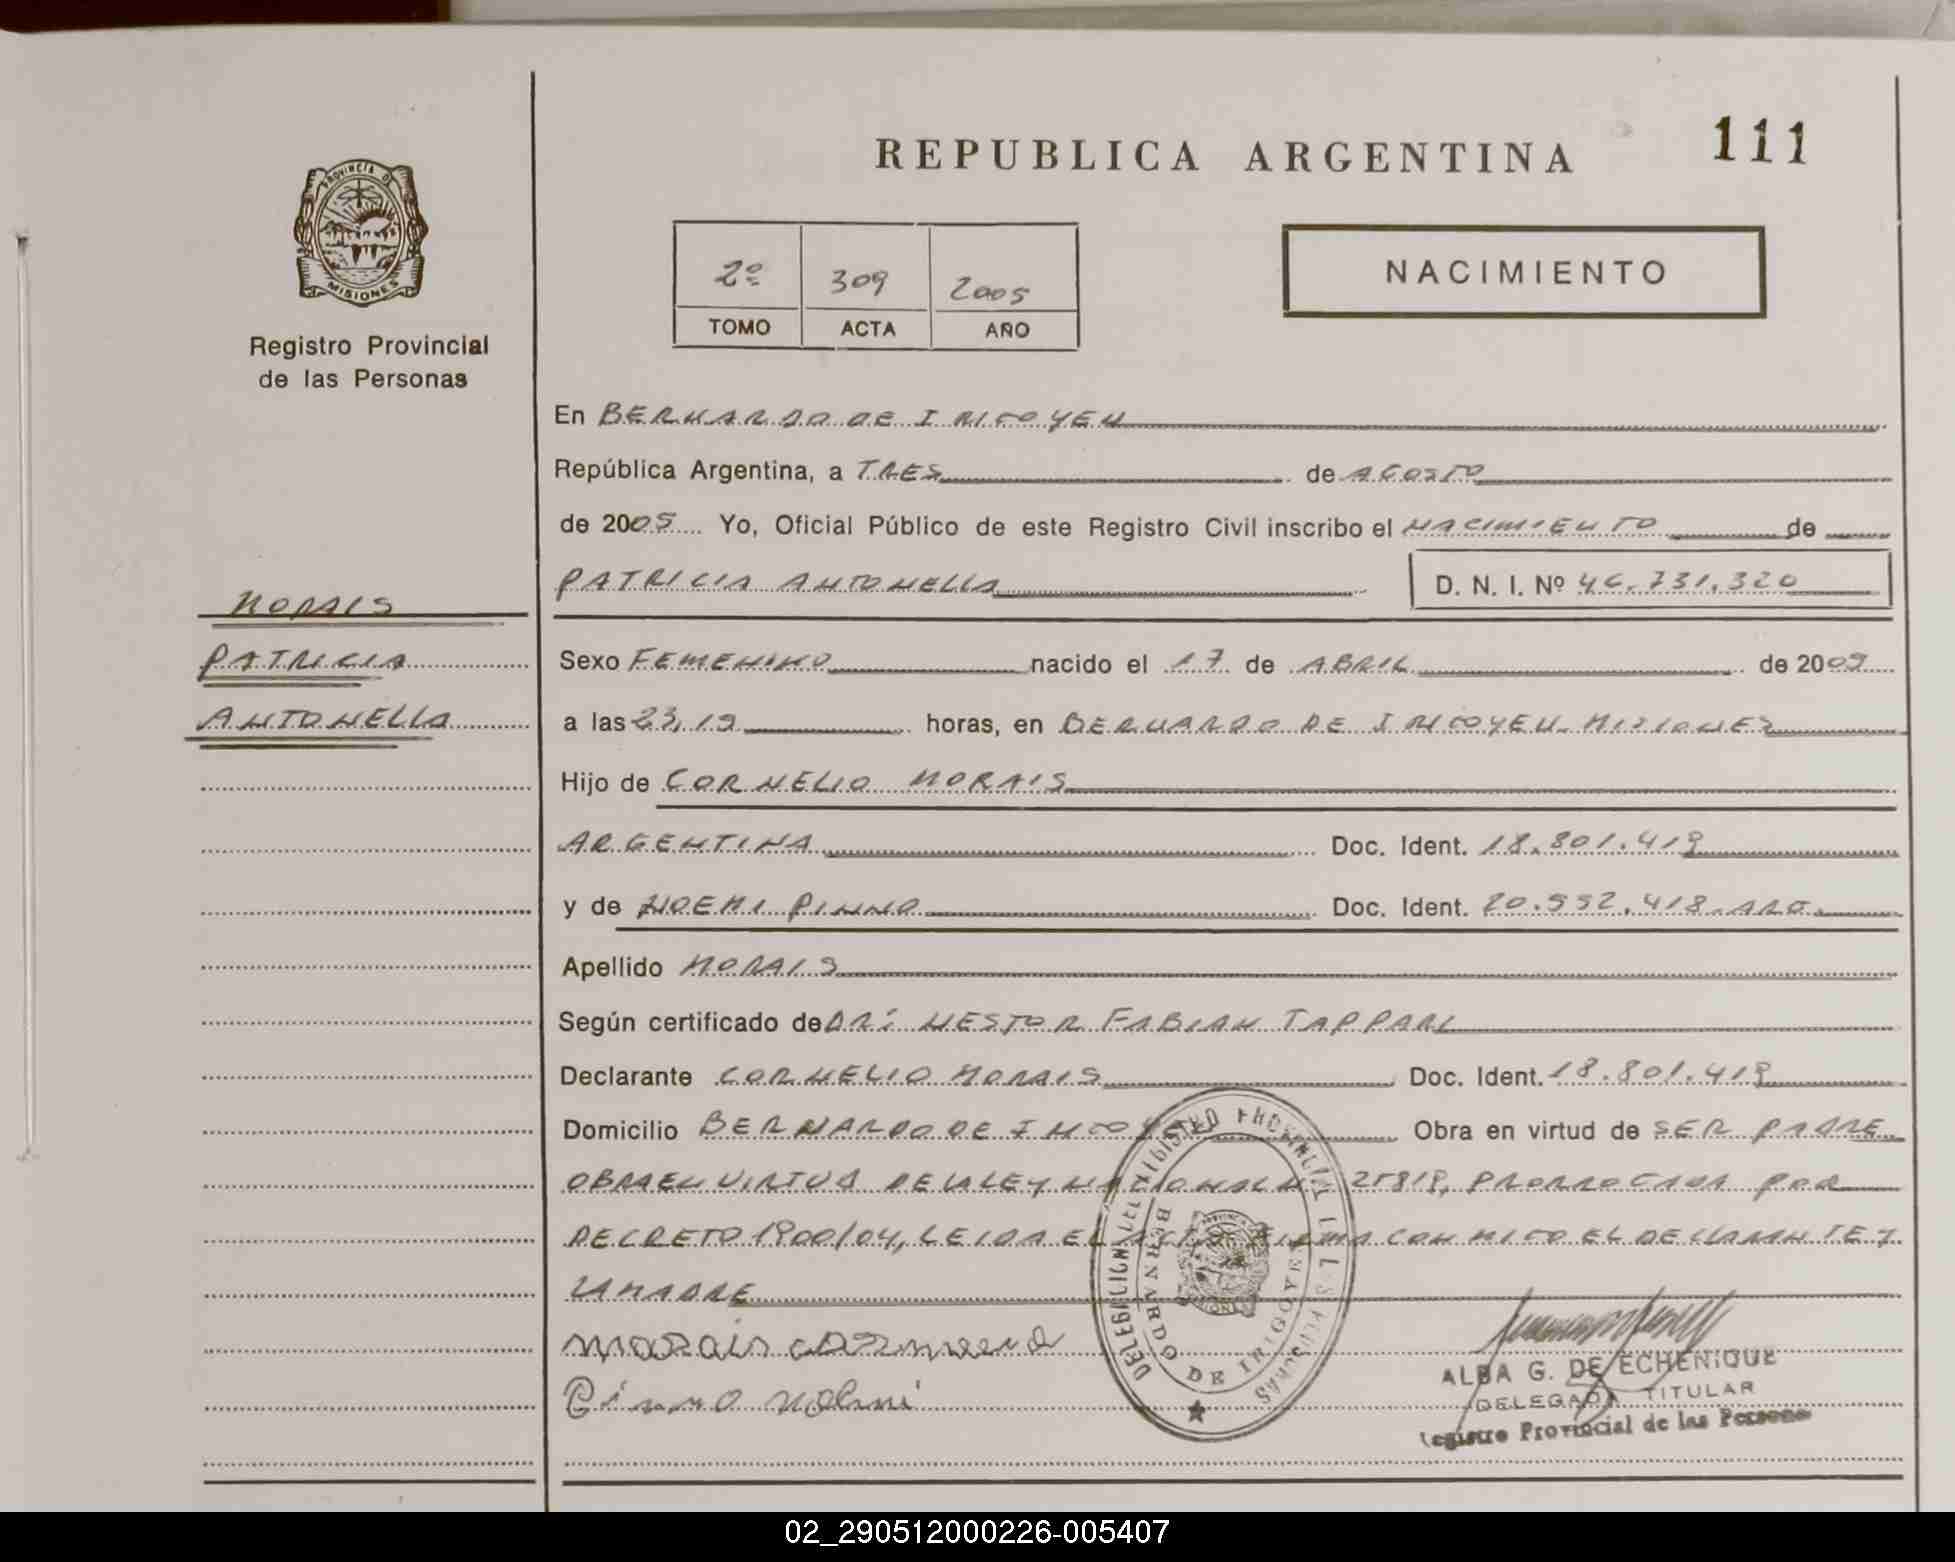 REPUBLICA ARGENTINA 111
PROVINCIA DE
MISIONES
Registro Provincial
de las Personas
2º 309 2005
TOMO ACTA AÑO
NACIMIENTO
En BERNARDO DE IRIGOYEN
República Argentina, a TRES de AGOSTO
de 2005 Yo, Oficial Público de este Registro Civil inscribo el NACIMIENTO de
PATRICIA ANTONELLA D. N. I. Nº 46.731.320
MORAIS
PATRICIA
ANTONELLA
Sexo FEMENINO nacido el 17 de ABRIL de 20
a las 23,19 horas, en BERNARDO DE IRIGOYEN. MISIONES
Hijo de CORNELIO MORAIS
ARGENTINA Doc. Ident. 18.801.419
y de NOEMI PINNO Doc. Ident. 20.552.418. ARG.
Apellido MORAIS
Según certificado de DR: NESTOR FABIAN TAPPARI
Declarante CORNELIO MORAIS Doc. Ident. 18.801.419
Domicilio BERNARDO DE Obra en virtud de SER PADRE
OBRA EN VIRTUD DE LA LEY NACIONAL Nº 25819, PRORROGADA POR
DECRETO 1900/04, LEIDA EL ACTA FIRMA CONMIGO EL DECLARANTE Y
LA MADRE
DELEGACION REGISTRO PROVINCIAL DE LAS PERSONAS
BERNARDO DE IRIGOYEN
Morais
Pinno
ALBA G. DE ECHENIQUE
DELEGADA TITULAR
Registro Provincial de las Personas
02_290512000226-005407